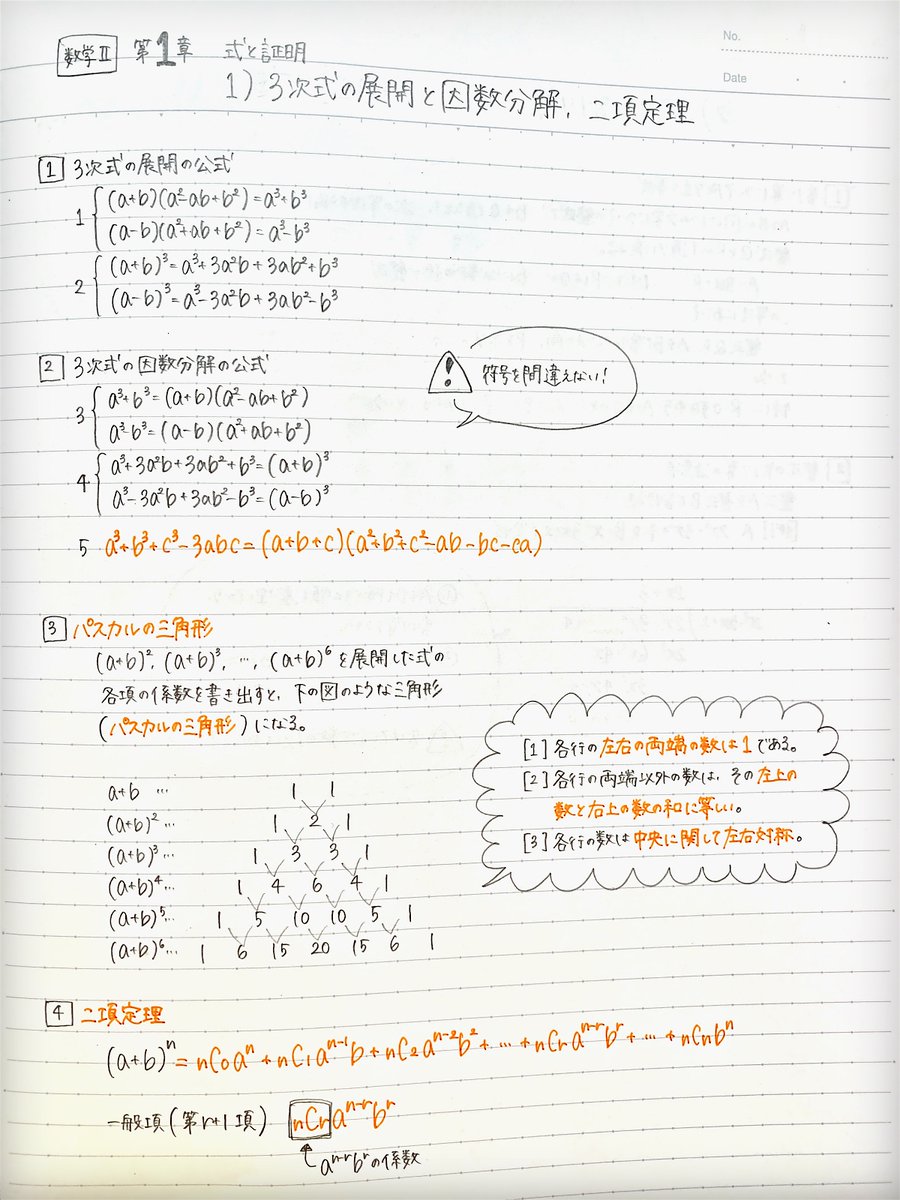 No.
Date
数学Ⅱ 第1章 式と証明
1) 3次式の展開と因数分解, 二項定理
1 3次式の展開の公式
1 (a+b)(a²-ab+b²)=a³+b³
(a-b)(a²+ab+b²)=a³-b³
2 (a+b)³=a³+3a²b+3ab²+b³
(a-b)³=a³-3a²b+3ab²-b³
2 3次式の因数分解の公式
! 符号を間違えない!
3 a³+b³=(a+b)(a²-ab+b²)
a³-b³=(a-b)(a²+ab+b²)
4 a³+3a²b+3ab²+b³=(a+b)³
a³-3a²b+3ab²-b³=(a-b)³
5 a³+b³+c³-3abc=(a+b+c)(a²+b²+c²-ab-bc-ca)
3 パスカルの三角形
(a+b)², (a+b)³, …, (a+b)⁶を展開した式の
各項の係数を書き出すと、下の図のような三角形
(パスカルの三角形)になる。
[1] 各行の左右の両端の数は1である。
[2] 各行の両端以外の数は、その左上の
数と右上の数の和に等しい。
[3] 各行の数は中央に関して左右対称。
a+b … 1 1
(a+b)² … 1 2 1
(a+b)³ … 1 3 3 1
(a+b)⁴ … 1 4 6 4 1
(a+b)⁵ … 1 5 10 10 5 1
(a+b)⁶ … 1 6 15 20 15 6 1
4 二項定理
(a+b)ⁿ=nC0aⁿ+nC1aⁿ⁻¹b+nC2aⁿ⁻²b²+…+nCraⁿ⁻ʳbʳ+…+nCnbⁿ
一般項(第r+1項) nCraⁿ⁻ʳbʳ
aⁿ⁻ʳbʳの係数